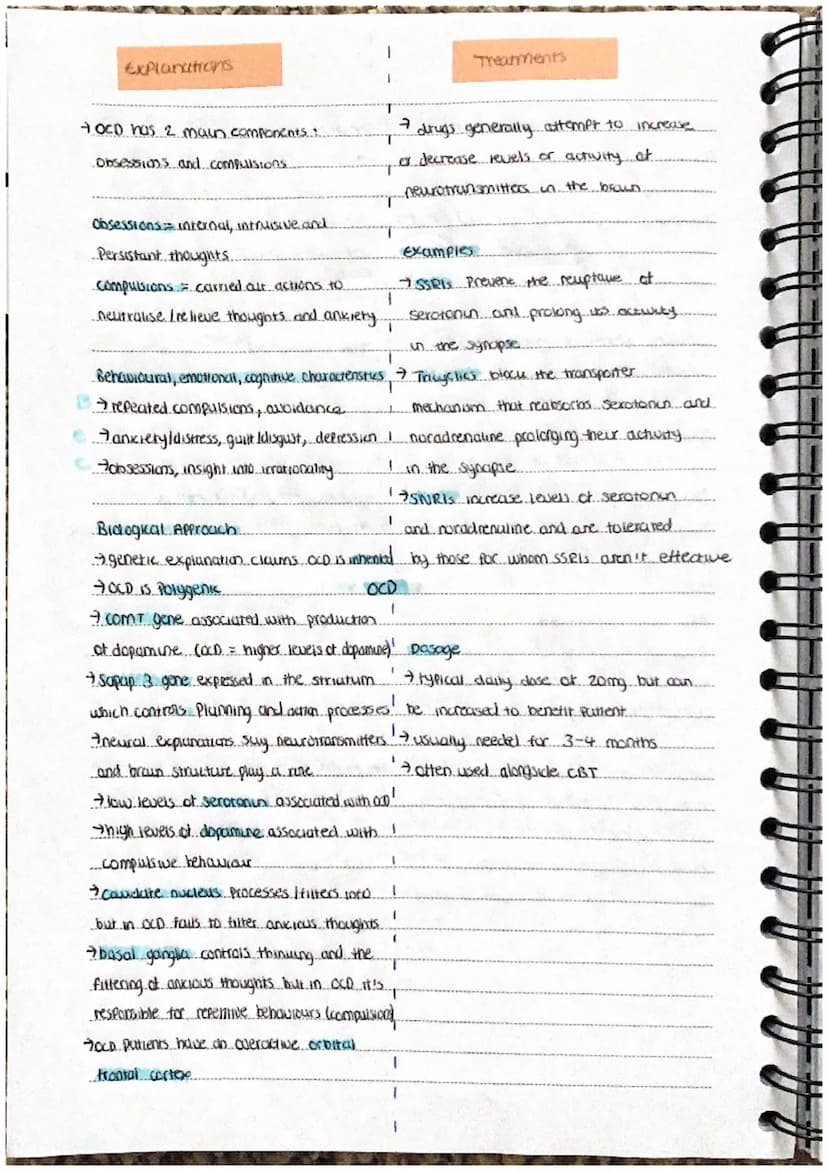 Explanations
→ OCD has 2 main components:
obsessions and compulsions
Obsessions = internal, intrusive and
Persistant thoughts
compulsions = carried out actions to
neutralise/relieve thoughts and anxiety
Behavioural, emotional, cognitive characteristics
B → repeated compulsions, avoidance
E → anxiety/distress, guilt/disgust, depression
C → obsessions, insight into irrationality
Biological Approach
→ genetic explanation claims OCD is inherited
→ OCD is Polygenic
→ COMT gene associated with production
of dopamine (OCD = higher levels of dopamine)
→ Sapap 3 gene expressed in the striatum
which controls Planning and action processes
→ neural explanations say neurotransmitters
and brain structure play a role
→ low levels of serotonin associated with OCD
→ high levels of dopamine associated with
compulsive behaviour
→ Caudate nucleus processes/filters info
but in OCD fails to filter anxious thoughts
→ basal ganglia controls thinking and the
filtering of anxious thoughts but in OCD it's
responsible for repetitive behaviours (compulsion)
→ OCD Patients have an overactive orbital
frontal cortex
OCD
Treatments
→ drugs generally attempt to increase
or decrease levels or activity of
neurotransmitters in the brain
Examples
→ SSRIs Prevent the reuptake of
serotonin and prolong its activity
in the synapse
→ Tricyclics block the transporter
mechanism that reabsorbs serotonin and
noradrenaline prolonging their activity
in the synapse
→ SNRIs increase levels of serotonin
and noradrenaline and are tolerated
by those for whom SSRIs aren't effective
Dosage
→ typical daily dose of 20mg but can
be increased to benefit patient
→ usually needed for 3-4 months
→ often used alongside CBT